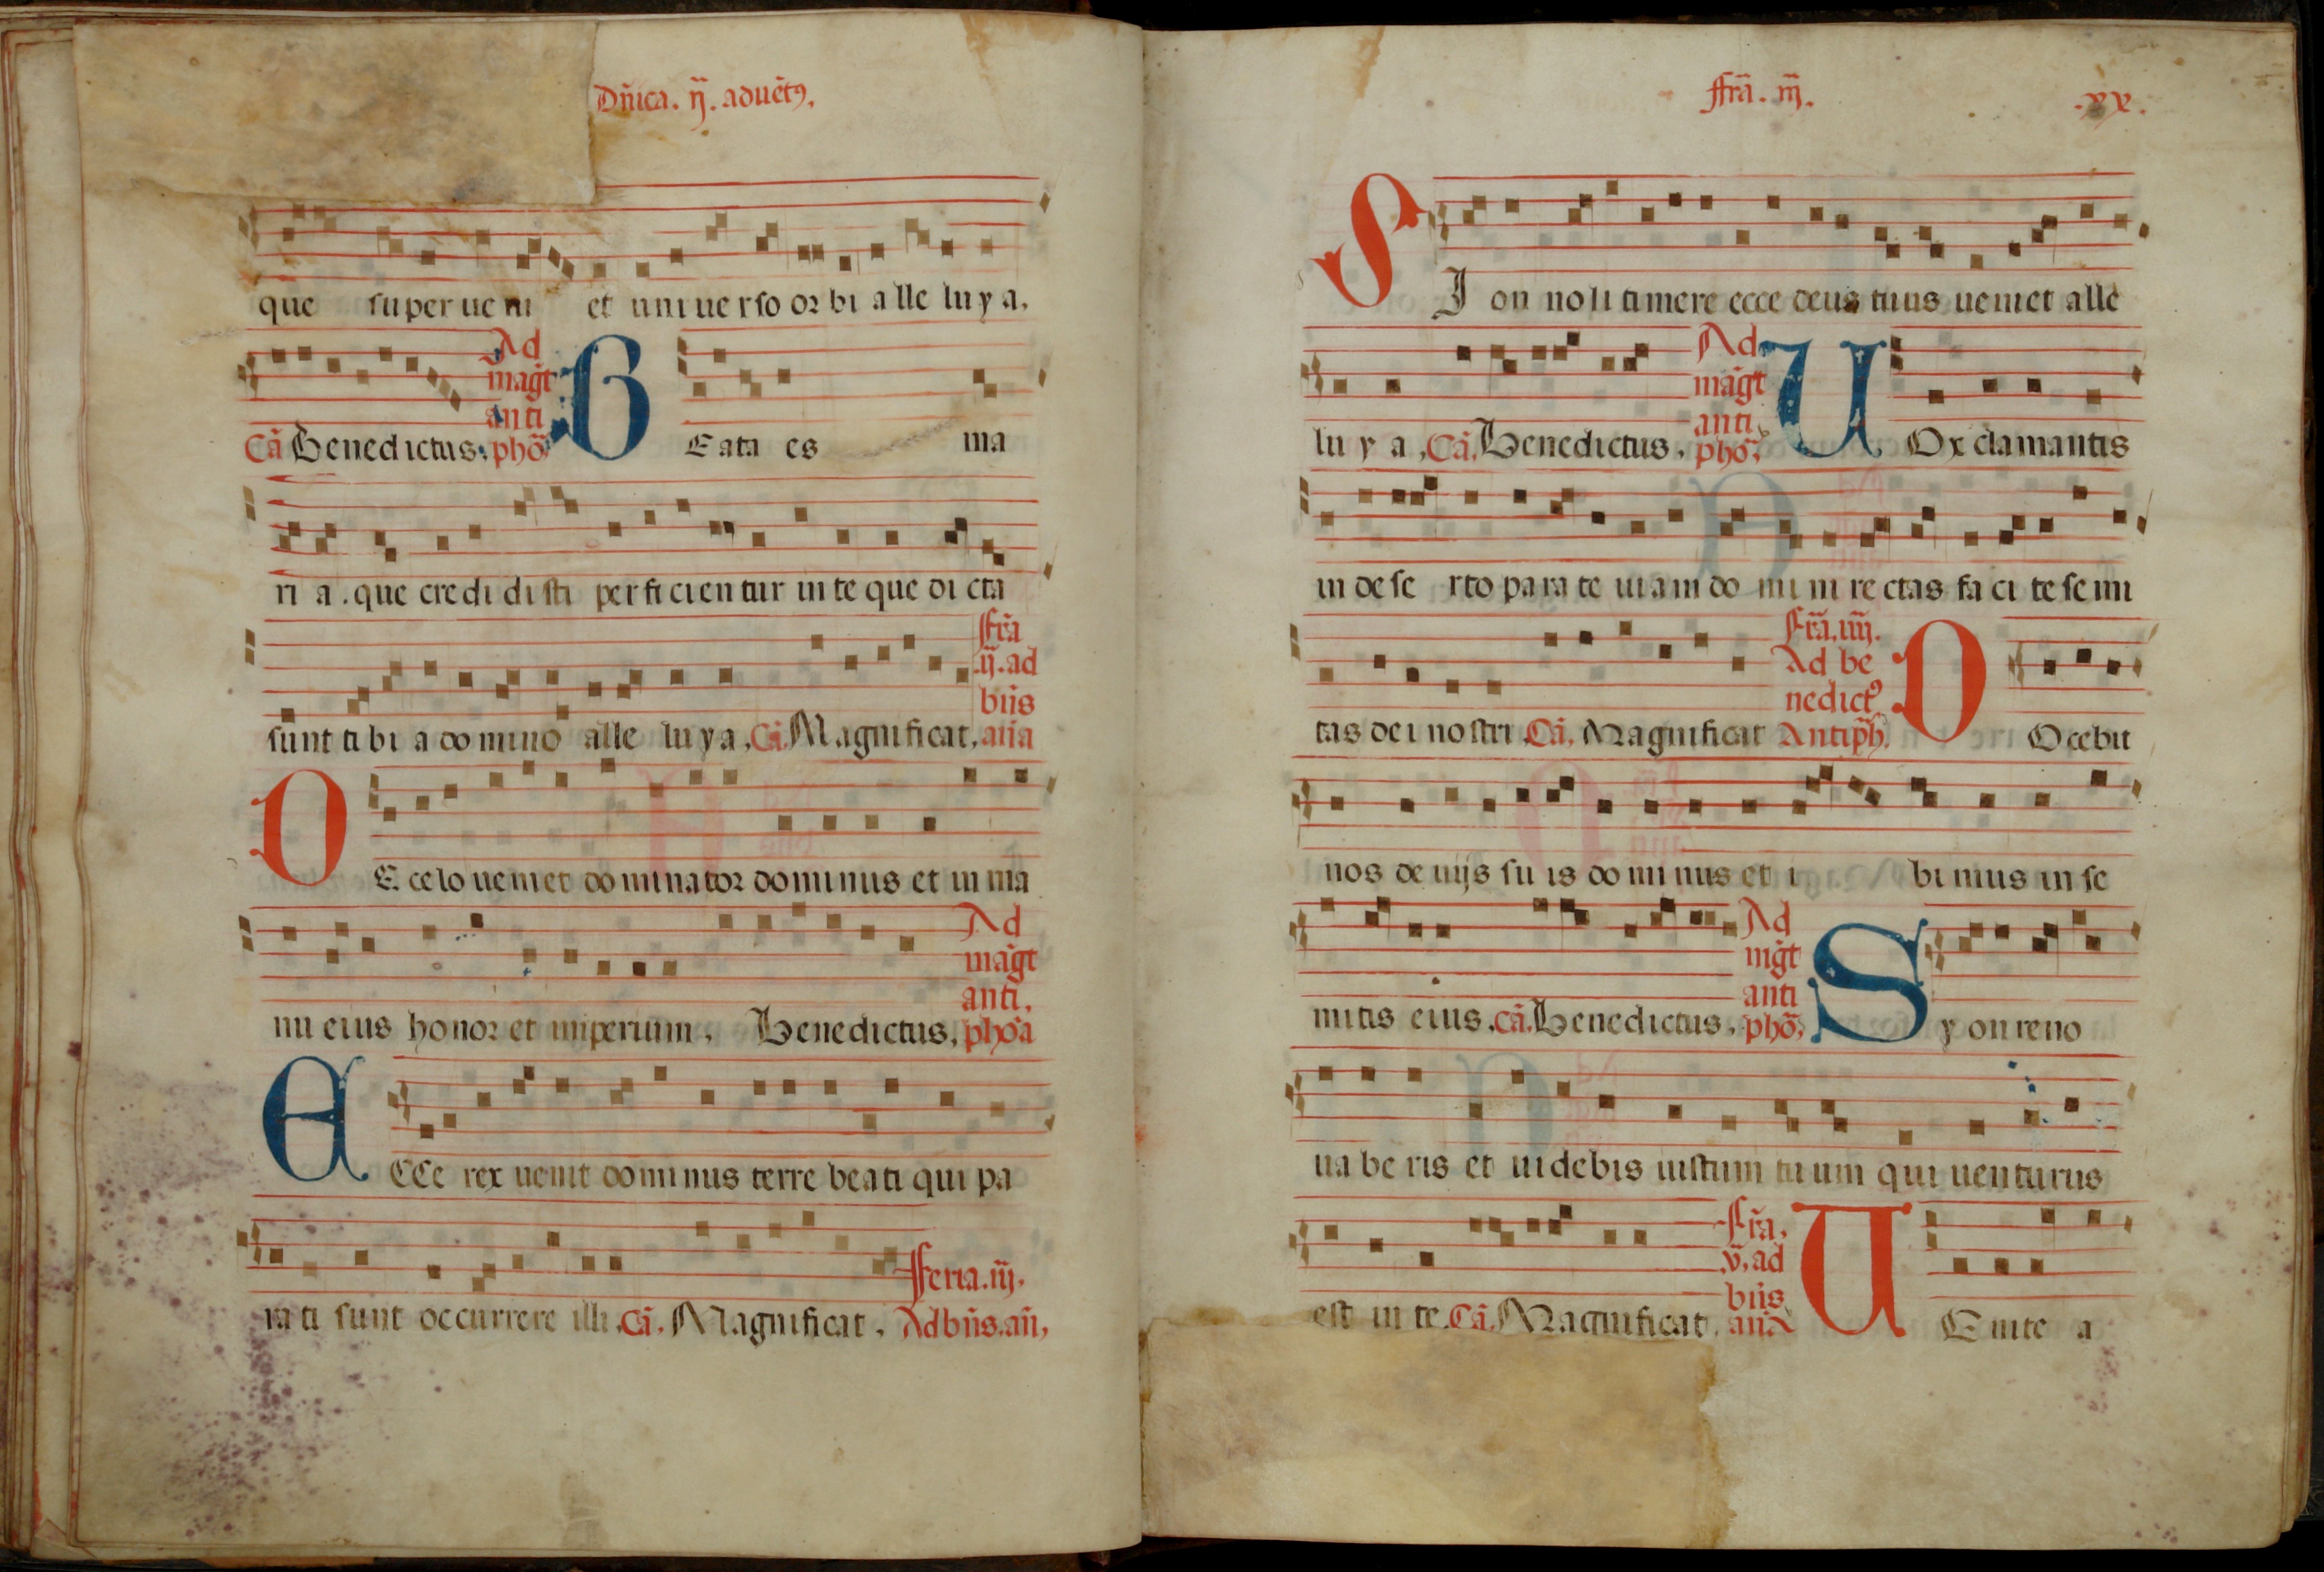 Dn̄ica. ij. aduēt9.
que superueni et uniuerso orbi alleluya.
Cā Benedictus. Ad māgt anti phō B Eata es ma
ria. que credidisti perficientur in te que dicta
sunt tibi a domino alleluya, Cā. Magnificat, fr̄a ij. ad bn̄s an̄a
D E celo ueniet dominator dominus et in ma
nu eius honor et imperium, Benedictus, Ad māgt anti. phōa
E CCe rex uenit dominus terre beati qui pa
rati sunt occurrere illi. Cā. Magnificat, fferia. iij. Ad bn̄s. an̄,
ffr̄a. iij. .xx.
S Ion noli timere ecce deus tuus ueniet alle
luya, Cā. Benedictus. Ad māgt anti phō, U Ox clamantis
in deserto parate uiam domini rectas facite semi
tas dei nostri. Cā. Magnificat Fr̄a. iiij. Ad be nedict9 Antip̄h. D Ocebit
nos de uijs suis dominus et ibimus in se
mitis eius. cā. Benedictus, Ad mḡt anti phō, S yon reno
uaberis et uidebis iustum tuum qui uenturus
est in te. Cā. Magnificat, Fr̄a, v. ad bn̄s an̄a U Enite a